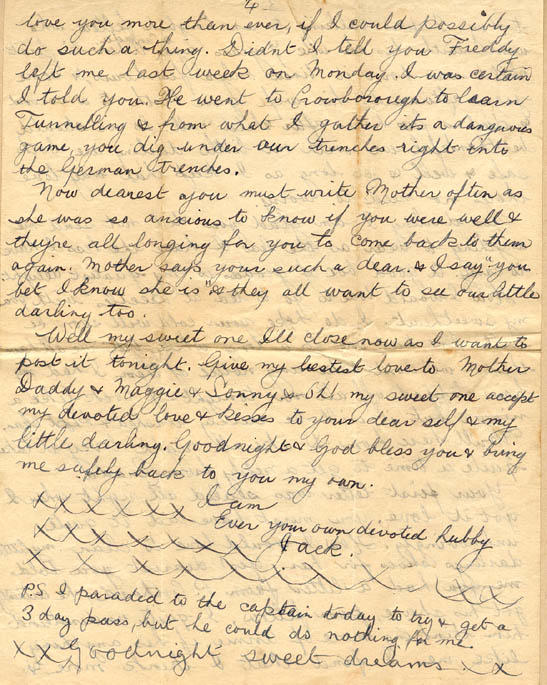 4
love you more than ever, if I could possibly
do such a thing. Didnt I tell you Freddy
left me last week on Monday. I was certain
I told you. He went to Crowborough to learn
Tunnelling & from what I gather its a dangerous
game you dig under our trenches right into
the German trenches.
Now dearest you must write Mother often as
she was so anxious to know if you were well &
they're all longing for you to come back to them
again. Mother says your such a dear. & I say "you
bet I know she is" & they all want to see our little
darling too.
Well my sweet one Ill close now as I want to
post it tonight. Give my bestest love to Mother
Daddy & Maggie & Sonny & Oh! my sweet one accept
my devoted love & kesses to your dear self & my
little darling. Goodnight & God bless you & bring
me safely back to you my own.
x x x x x x I am
Ever your own devoted hubby
x x x x x x x Jack.
x x x x x x x x x x x
P.S I paraded to the captain today to try & get a
3 day pass, but he could do nothing for me.
x x Goodnight sweet dreams x x